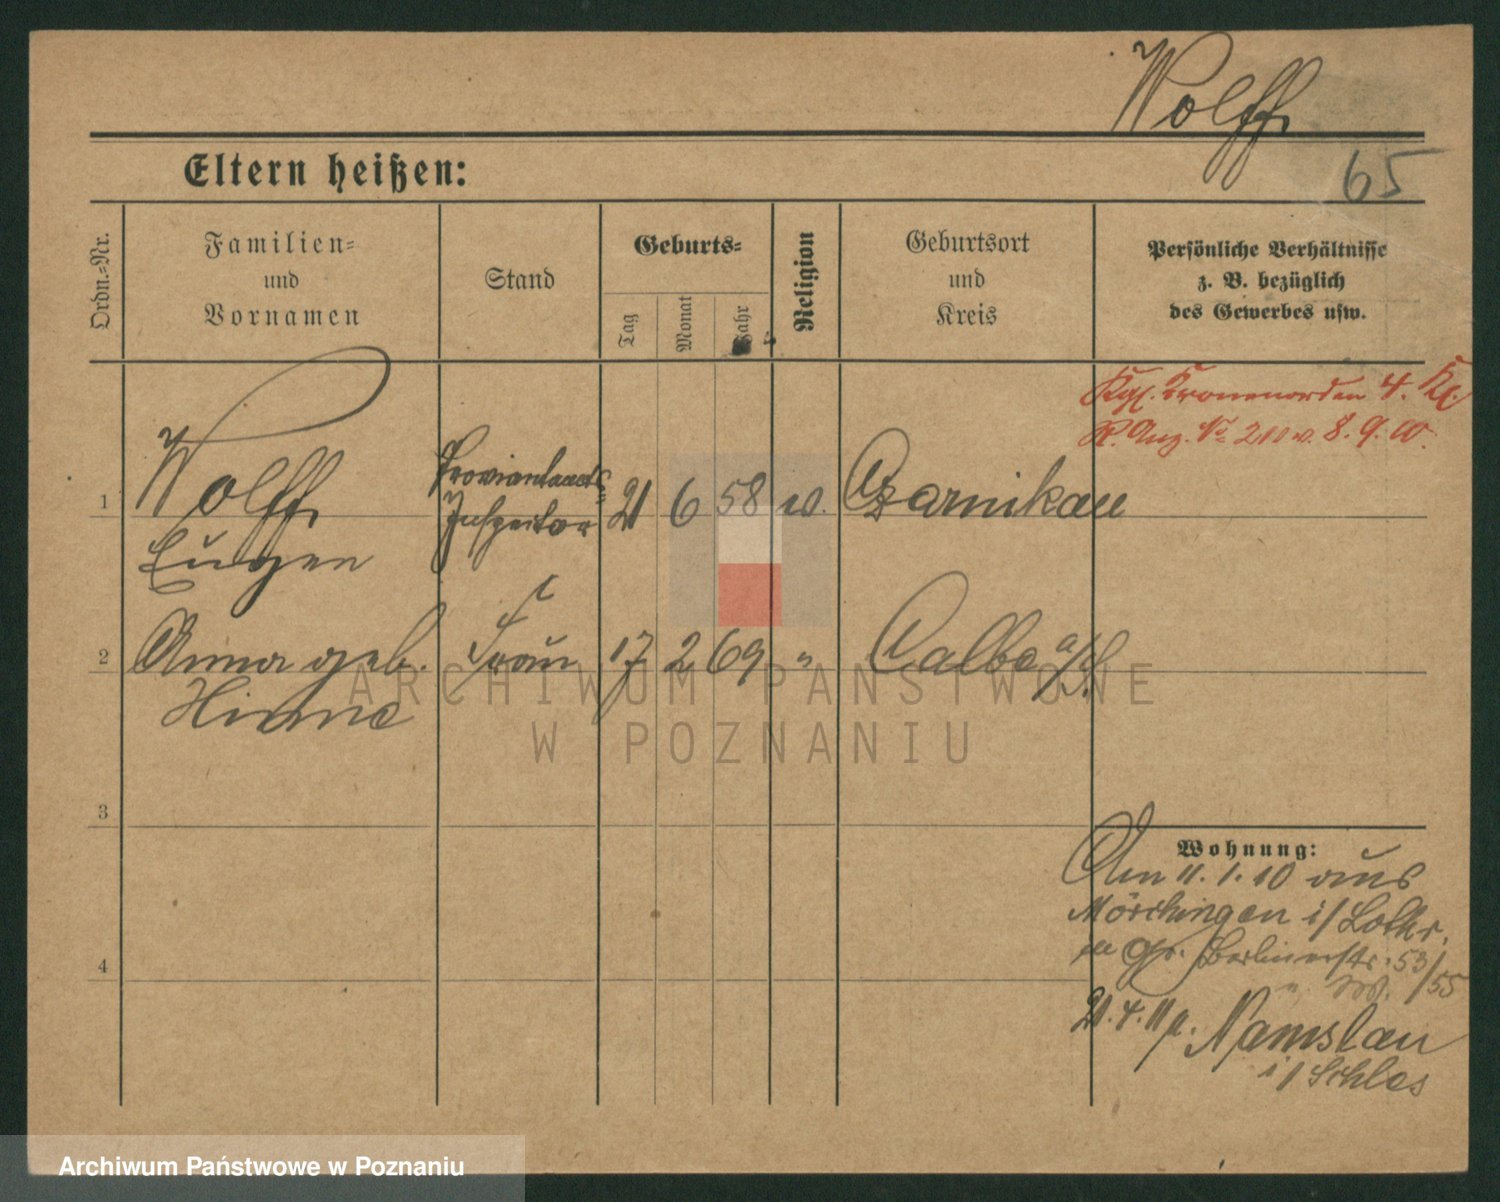 Wolff,
65
Eltern heißen:
Ordn.-Nr.
Familien=
und
Vornamen
Stand
Geburts=
Tag
Monat
Jahr
Religion
Geburtsort
und
Kreis
Persönliche Verhältnisse
z. B. bezüglich
des Gewerbes usw.
Kgl. Kronenorden 4. Kl.
R. Anz. No 210 v. 8. 9. 10.
1 Wolff, Eugen
Proviantamts=
Inspektor
21 6 58 Czarnikau
2 Anna geb.
Hinne
Frau 17 2 69 " Calbe a/S.
3
4
Wohnung:
Am 11. 1. 10 aus
Mörchingen i/Lothr.
Gr. Berlinerstr. 53/55
21. 4. 11 n. Namslau
i/Schles
ARCHIWUM PAŃSTWOWE
W POZNANIU
Archiwum Państwowe w Poznaniu